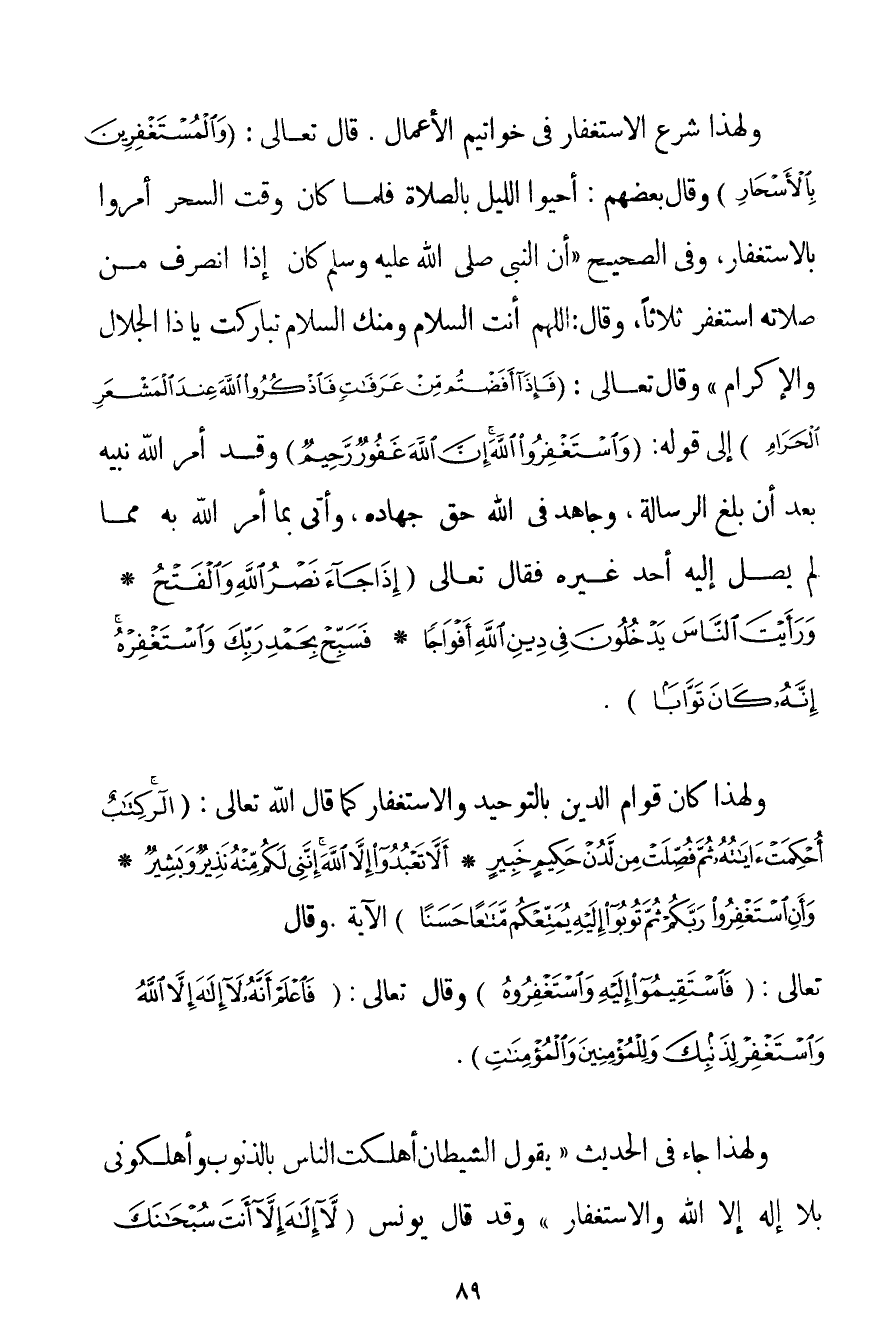 ولهذا شرع الاستغفار فى خواتيم الأعمال . قال تعـالى : (وَٱلْمُسْتَغْفِرِينَ
بِٱلْأَسْحَارِ ) وقال بعضهم : أحيوا الليل بالصلاة فلمـا كان وقت السحر أمروا
بالاستغفار، وفى الصحيح «أن النبى صلى الله عليه وسلم كان إذا انصرف مـن
صلاته استغفر ثلاثاً، وقال: اللهم أنت السلام ومنك السلام تباركت يا ذا الجلال
والإكرام » وقال تعـالى : (فَإِذَآ أَفَضْتُم مِّنْ عَرَفَٰتٍ فَٱذْكُرُوا۟ ٱللَّهَ عِندَ ٱلْمَشْعَرِ
ٱلْحَرَامِ ) إلى قوله: (وَٱسْتَغْفِرُوا۟ ٱللَّهَ ۚ إِنَّ ٱللَّهَ غَفُورٌ رَّحِيمٌ) وقـد أمر الله نبيه
بعد أن بلغ الرسالة ، وجاهد فى الله حق جهاده ، وأتى بما أمر الله به ممـا
لم يصـل إليه أحد غـيره فقال تعـالى ( إِذَا جَآءَ نَصْرُ ٱللَّهِ وَٱلْفَتْحُ *
وَرَأَيْتَ ٱلنَّاسَ يَدْخُلُونَ فِى دِينِ ٱللَّهِ أَفْوَاجًا * فَسَبِّحْ بِحَمْدِ رَبِّكَ وَٱسْتَغْفِرْهُ ۚ
إِنَّهُۥ كَانَ تَوَّابًۢا ) .
ولهذا كان قوام الدين بالتوحيد والاستغفار كما قال الله تعالى : ( الٓر ۚ كِتَٰبٌ
أُحْكِمَتْ ءَايَٰتُهُۥ ثُمَّ فُصِّلَتْ مِن لَّدُنْ حَكِيمٍ خَبِيرٍ * أَلَّا تَعْبُدُوٓا۟ إِلَّا ٱللَّهَ ۚ إِنَّنِى لَكُم مِّنْهُ نَذِيرٌ وَبَشِيرٌ *
وَأَنِ ٱسْتَغْفِرُوا۟ رَبَّكُمْ ثُمَّ تُوبُوٓا۟ إِلَيْهِ يُمَتِّعْكُم مَّتَٰعًا حَسَنًا ) الآية .وقال
تعالى : ( فَٱسْتَقِيمُوٓا۟ إِلَيْهِ وَٱسْتَغْفِرُوهُ ) وقال تعالى : ( فَٱعْلَمْ أَنَّهُۥ لَآ إِلَٰهَ إِلَّا ٱللَّهُ
وَٱسْتَغْفِرْ لِذَنۢبِكَ وَلِلْمُؤْمِنِينَ وَٱلْمُؤْمِنَٰتِ ) .
ولهذا جاء فى الحديث « يقول الشيطان أهلـكت الناس بالذنوب وأهلـكونى
بلا إله إلا الله والاستغفار » وقد قال يونس ( لَّآ إِلَٰهَ إِلَّآ أَنتَ سُبْحَٰنَكَ
٨٩